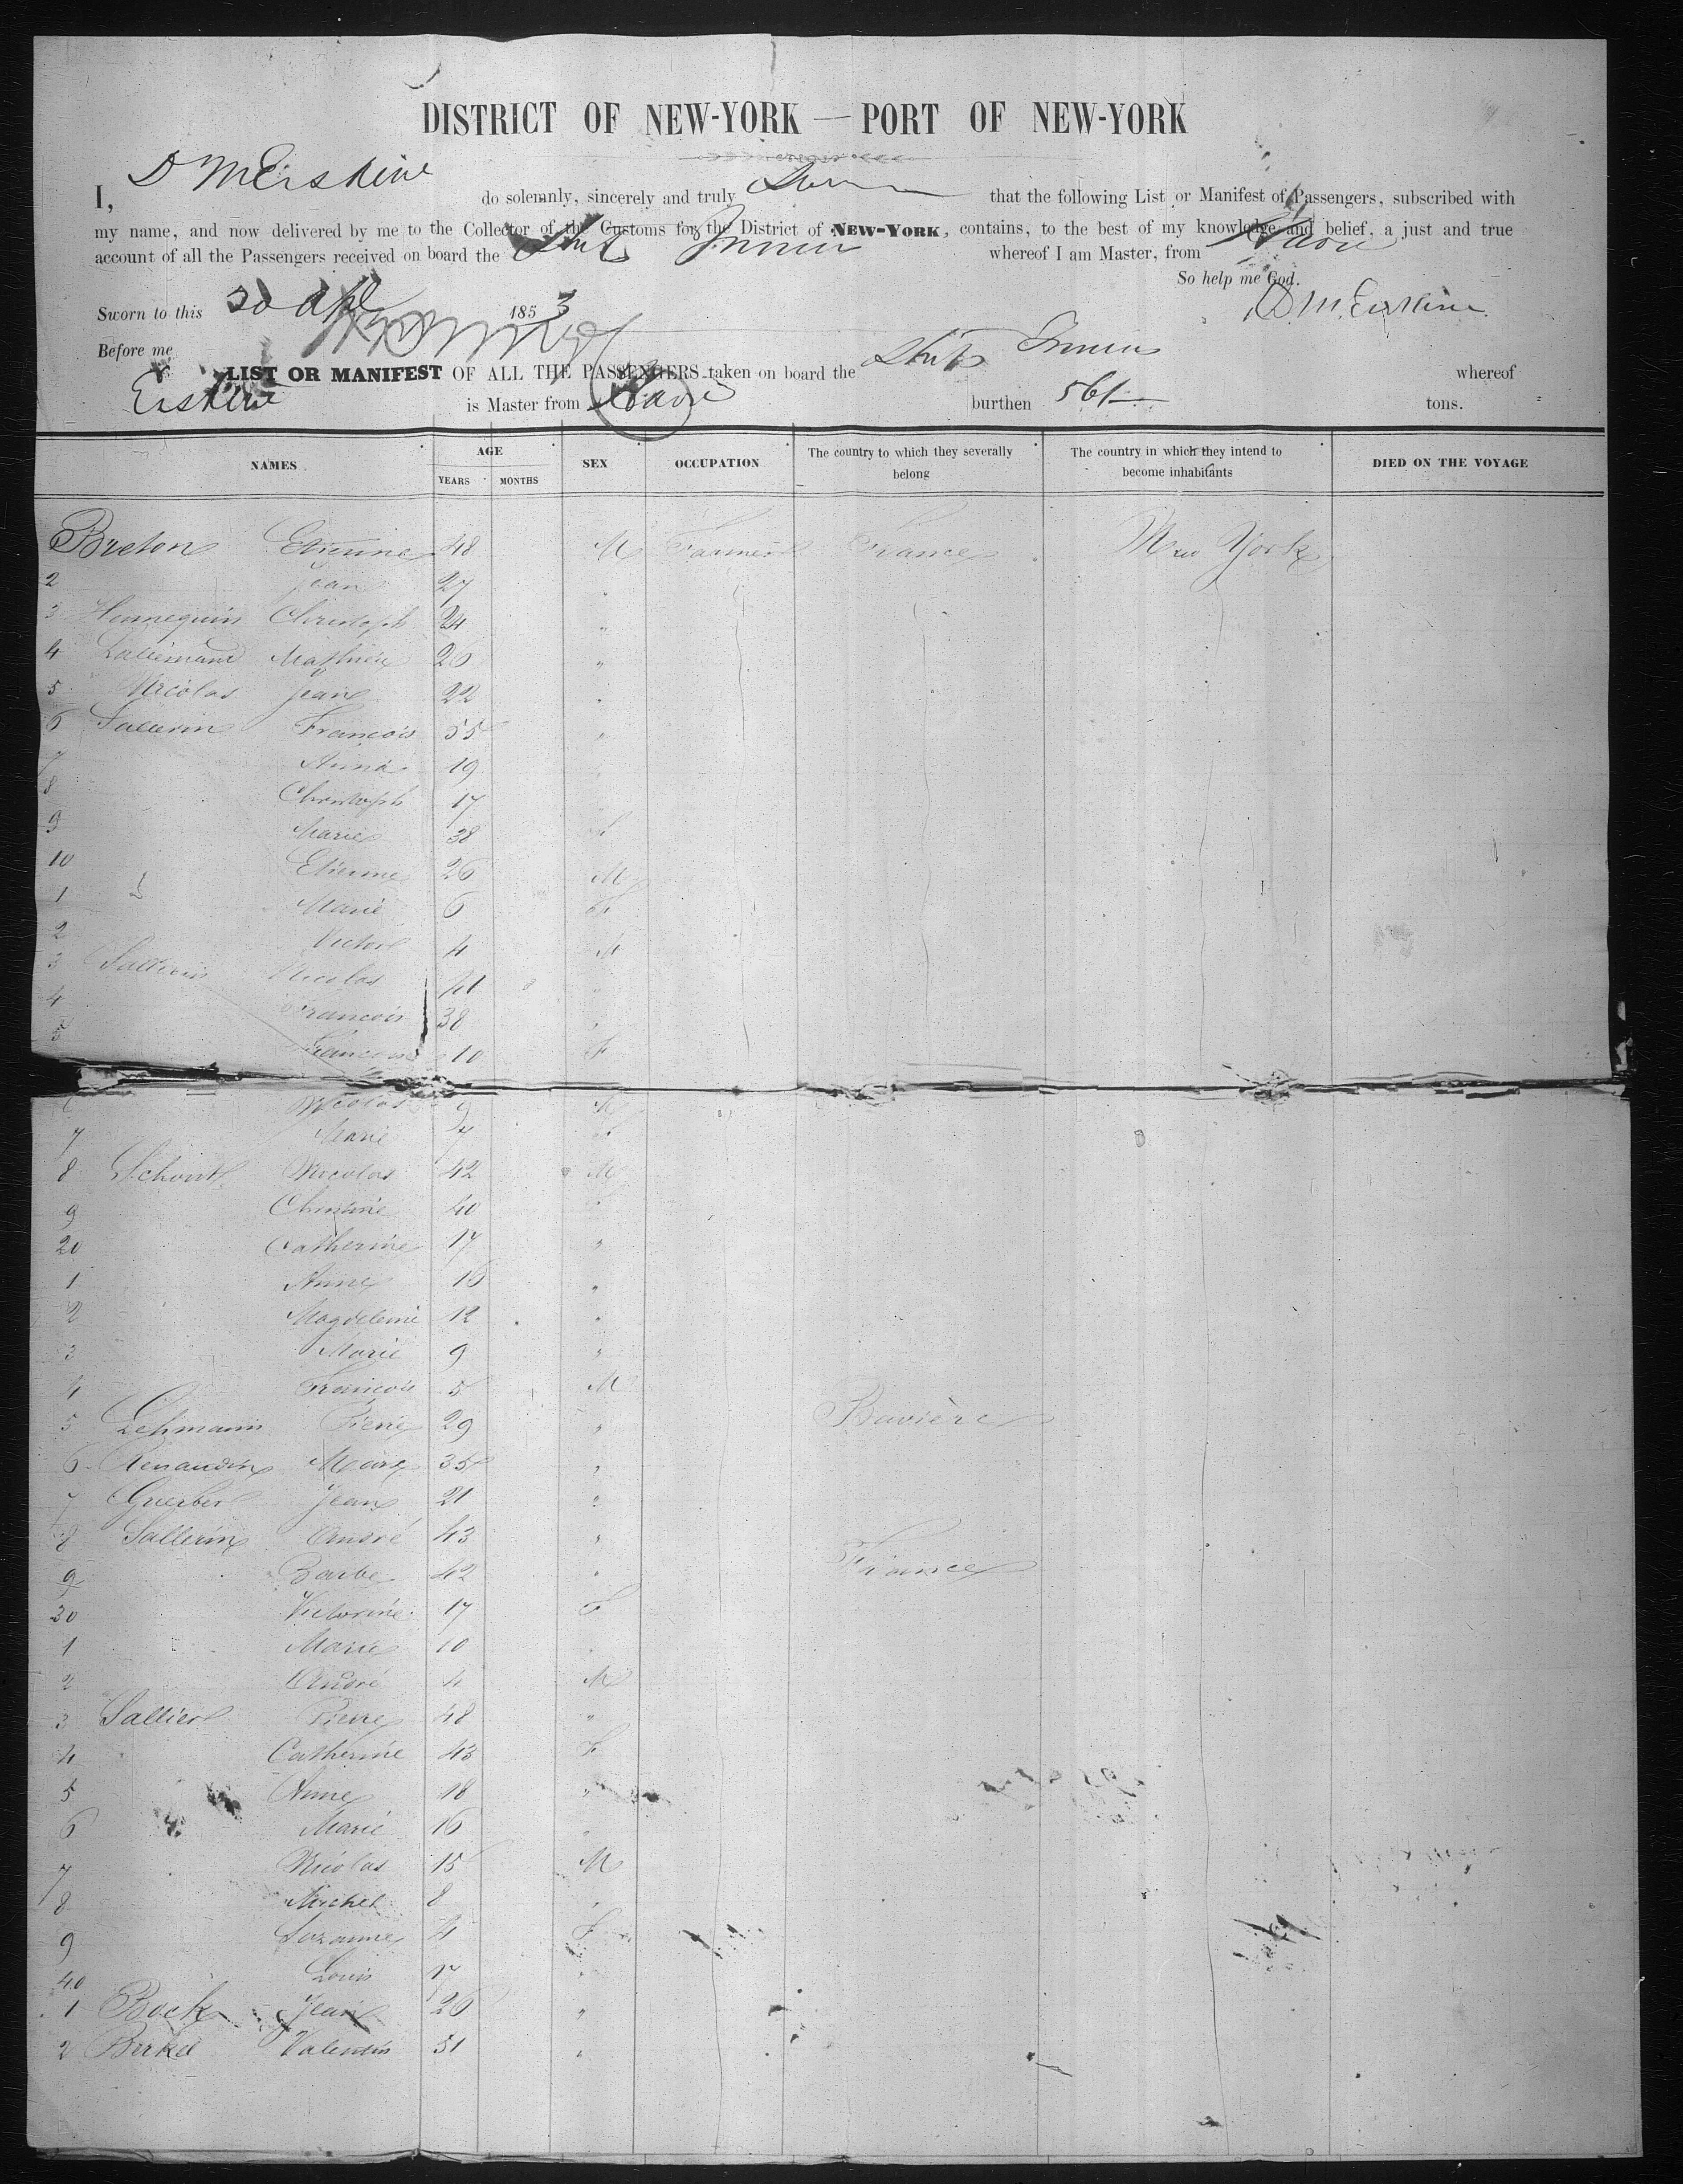 DISTRICT OF NEW-YORK — PORT OF NEW-YORK
I, D M Erskine do solemnly, sincerely and truly Swear that the following List or Manifest of Passengers, subscribed with
my name, and now delivered by me to the Collector of the Customs for the District of NEW-YORK, contains, to the best of my knowledge and belief, a just and true
account of all the Passengers received on board the Ship whereof I am Master, from Havre
So help me God.
Sworn to this 20 Apl 1853 D. M. Erskine
Before me
LIST OR MANIFEST OF ALL THE PASSENGERS taken on board the Ship whereof
Erskine is Master from Havre burthen 561 tons.
NAMES AGE YEARS MONTHS SEX OCCUPATION The country to which they severally belong The country in which they intend to become inhabitants DIED ON THE VOYAGE
Breton Etienne 48 M Farmer France New York
2 Jean 27 "
3 Hennequin Christoph 24 "
4 Lallemand Mathieu 20 "
5 Nicolas Jean 22 "
6 Francois 55 "
7 Anna 19
8 Christoph 17
9 Marie 38 F
10 Etienne 26 M
1 Marie 6 F
2 Victor 4 M
3 Nicolas 41 "
4 Francois 38 "
5 10 F
Nicolas 9 M
7 Marie 7 F
8 Nicolas 42 M
9 Christine 40 F
20 Catherine 17 "
1 Anne 16 "
2 Magdeleine 12 "
3 Marie 9 "
4 Francois 5 M
5 Lehmann Pierre 29 " Bavière
6 Renaudin 35 "
7 Guerber Jean 21 "
8 Sallerin André 43 "
9 Barbe 42 " France
30 Victorine 17 F
1 Marie 10 "
2 André 4 M
3 Sallier Pierre 48 "
4 Catherine 43 F
5 Anne 18 "
6 Marie 16 "
7 Nicolas 15 M
8 Michel 8 "
9 Suzanne 4 F
40 Louis 17 "
1 Bock Jean 26 "
2 Birkel Valentin 51 "